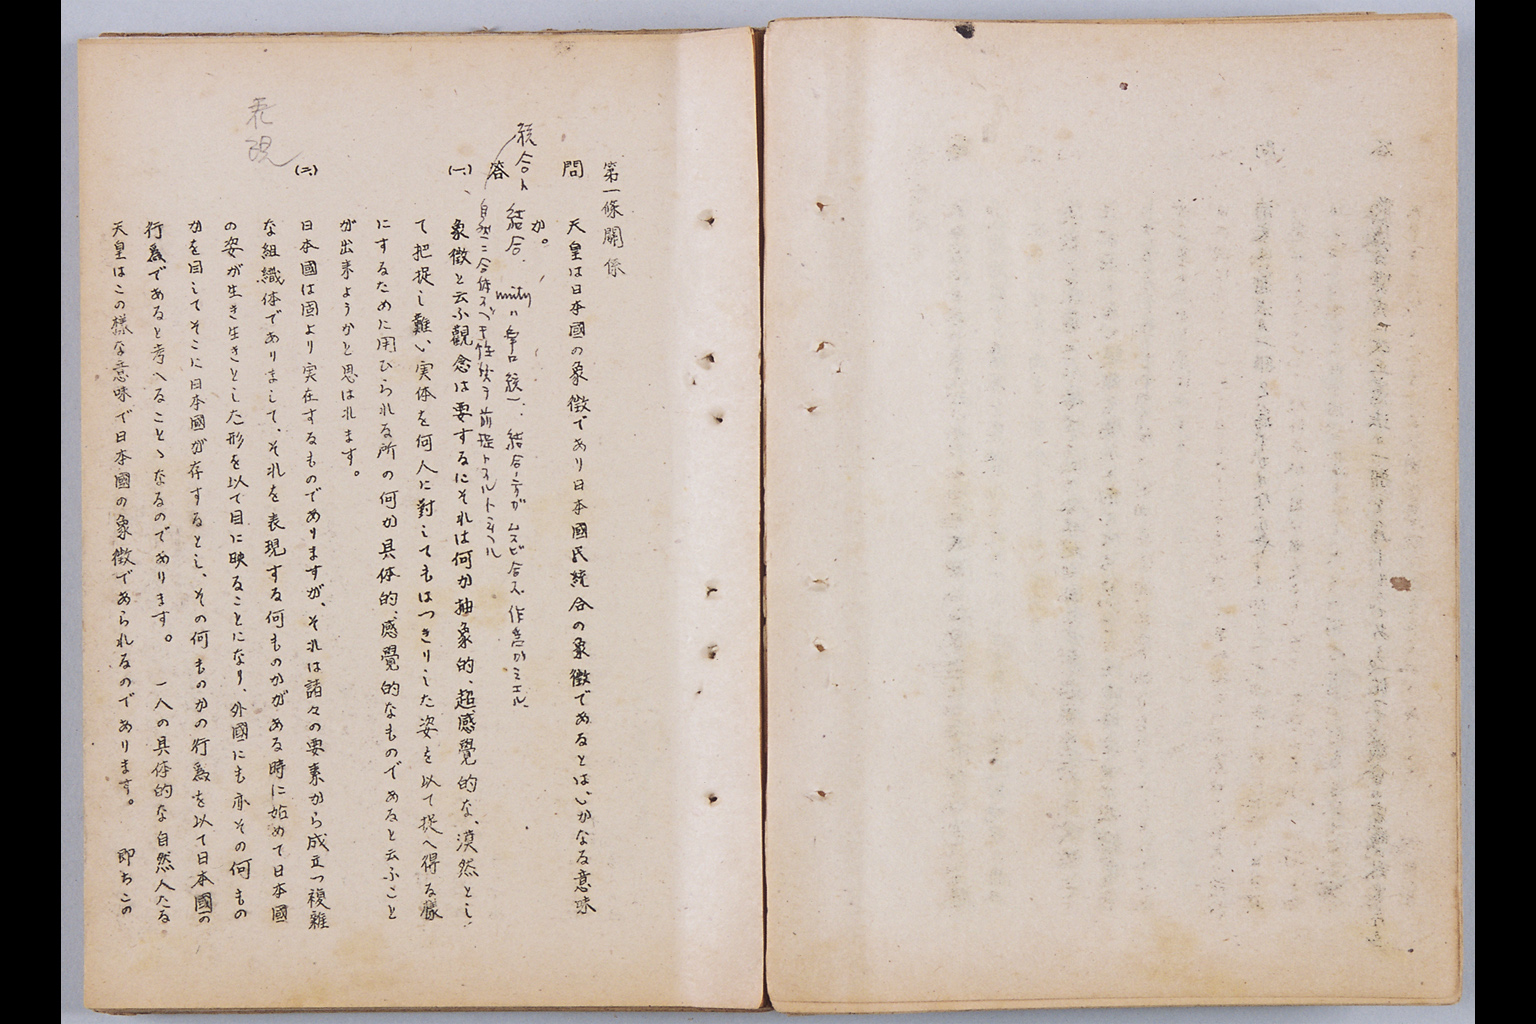 第一條関係
問 天皇は日本國の象徴であり日本國民統合の象徴であるとはいかなる意味
か。
統合ト結合. unity ハ 統一. 結合ノ方ガムスビ合ス作意がミエル.
答 自然ニ合体スベキ性質ヲ前提
(一)、象徴と云ふ觀念は要するにそれは何か抽象的、超感覺的な、漠然とし
て把捉し難い実体を何人に対してもはつきりした姿を以て捉へ得る様
にするために用ひられる所の何か具体的、感覺的なものであると云ふこと
が出来ようかと思はれます。
(二)、日本國は固より実在するものでありますが、それは諸々の要素から成立つ複雜
な組織体でありまして、それを表現する何ものかがある時に始めて日本國
の姿が生き生きとした形を以て目に映ることになり、外國にも亦その何もの
かを目してそこに日本國が存するとし、その何ものかの行為を以て日本國の
行為であると考へることゝなるのであります。 一人の具体的な自然人たる
天皇はこの様な意味で日本國の象徴であられるのであります。 即ちこの
表現